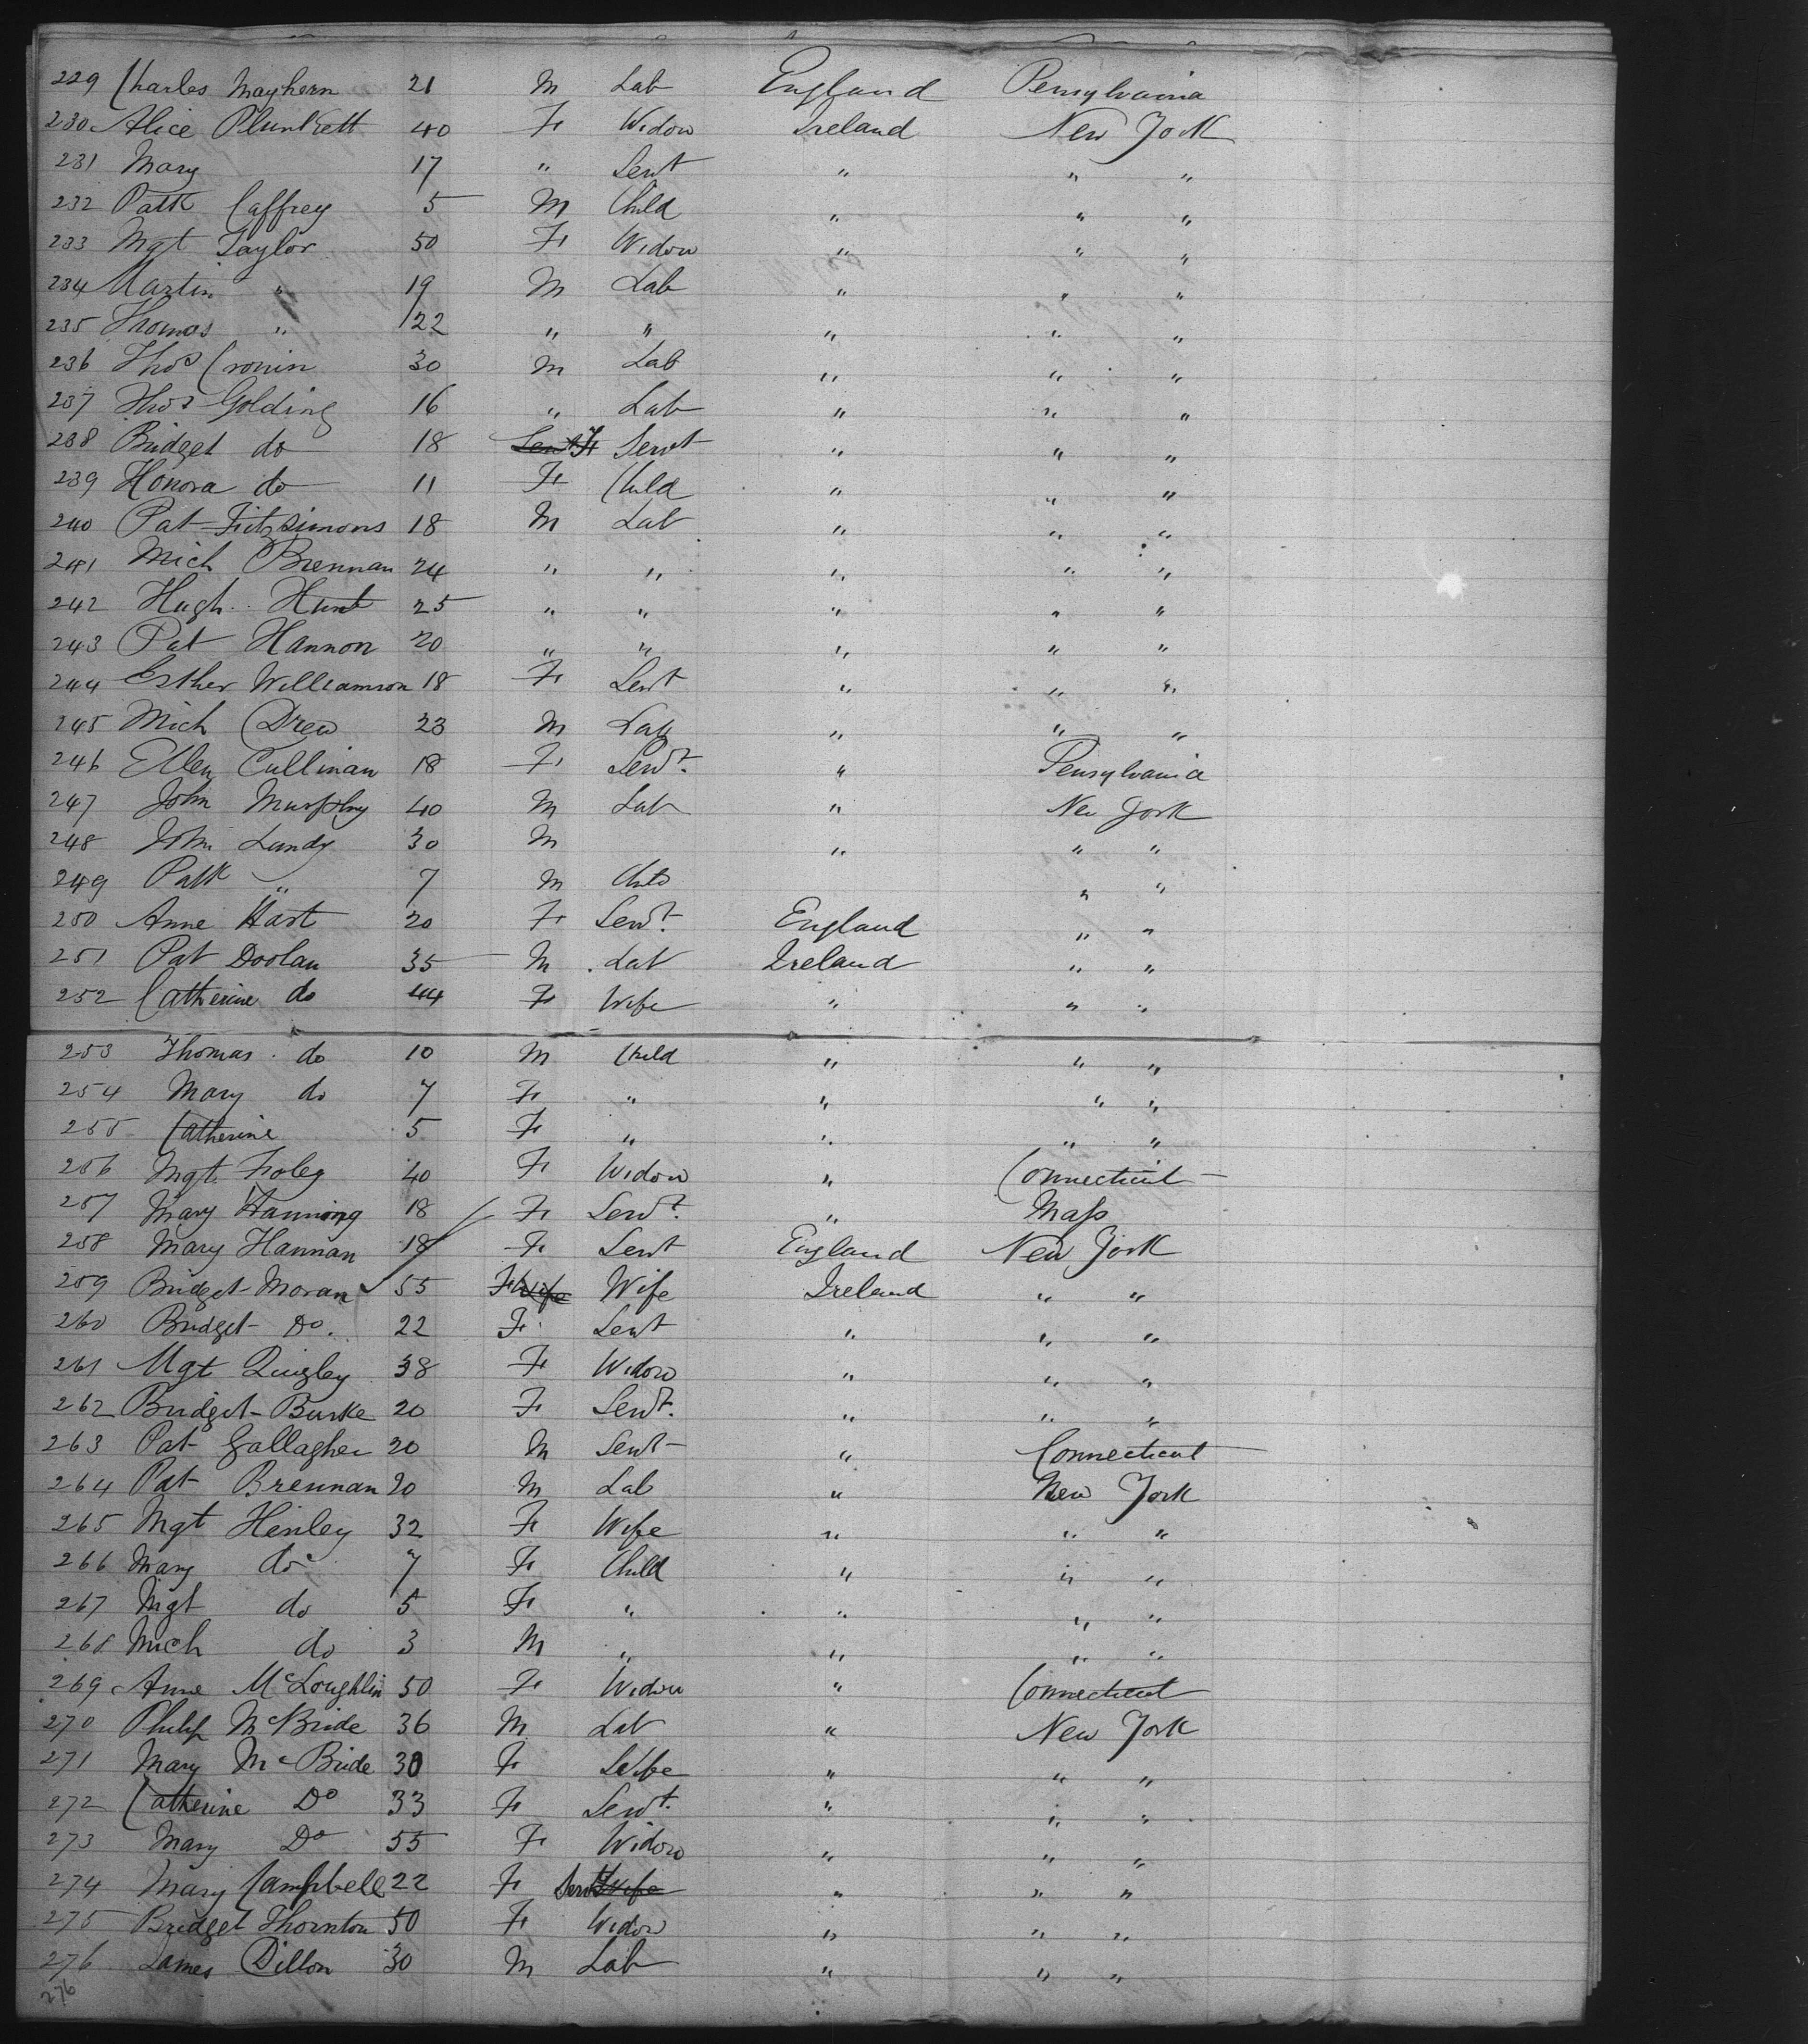 229 Charles Mayhern 21 M Lab England Pensylvania
230 Alice Plunkett 40 F Widow Ireland New York
231 Mary 17 " Servt " " "
232 Patk Caffrey 5 M Child " " "
233 Mgt Taylor 50 F Widow " " "
234 Martin " 19 M Lab " " "
235 Thomas " 22 " " " " "
236 Thos Cronin 30 M Lab " " "
237 Thos Golding 16 " Lab " " "
238 Bridget do 18 F Servt " " "
239 Honora do 11 F Child " " "
240 Pat Fitzsimons 18 M Lab " " "
241 Mich Brennan 24 " " " " "
242 Hugh Hunt 25 " " " " "
243 Pat Hannon 20 " " " " "
244 Esther Williamson 18 F Servt " " "
245 Mich Drew 23 M Lab " " "
246 Ellen Cullinan 18 F Servt. " Pensylvania
247 John Murphy 40 M Lab " New York
248 John Lundy 30 M " " "
249 Patk " 7 M " "
250 Anne Hart 20 F Servt. England " "
251 Pat Doolan 35 M Lab Ireland " "
252 Catherine do 44 F Wife " " "
253 Thomas do 10 M Child " " "
254 Mary do 7 F " " " "
255 Catherine 5 F " " " "
256 Mgt. Foley 40 F Widow " Connecticut
257 Mary 18 F Servt. " Mass
258 Mary Hannan 18 F Servt England New York
259 Bridget Moran 55 F Wife Ireland " "
260 Bridget Do. 22 F Servt " " "
261 Mgt Quigley 38 F Widow " " "
262 Bridget Burke 20 F Servt. " " "
263 Pat Gallagher 20 M Servt " Connecticut
264 Pat Brennan 20 M Lab " New York
265 Mgt Henley 32 F Wife " " "
266 Mary do 7 F Child " " "
267 Mgt do 5 F " " " "
268 Mich do 3 M " " " "
269 Anne McLoughlin 50 F Widow " Connecticut
270 Philip McBride 36 M Lab " New York
271 Mary McBride 30 F Wife " " "
272 Catherine Do 33 F Servt. " " "
273 Mary Do 55 F Widow " " "
274 Mary Campbell 22 F Servt Wife " " "
275 Bridget Thornton 50 F Widow " " "
276 James Dillon 30 M Lab " " "
276